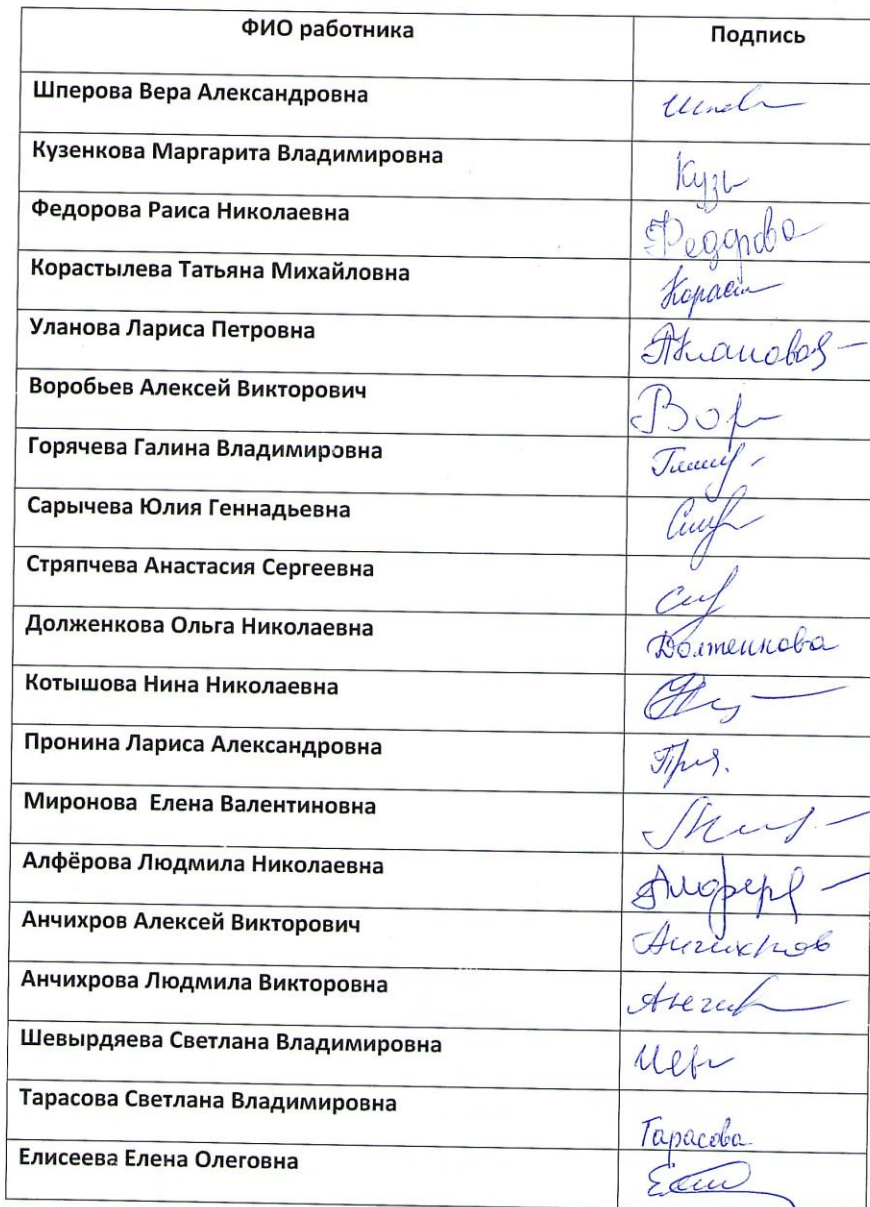 ФИО работника Подпись
Шперова Вера Александровна
Кузенкова Маргарита Владимировна Кузь
Федорова Раиса Николаевна Федорова
Корастылева Татьяна Михайловна Корас
Уланова Лариса Петровна
Воробьев Алексей Викторович Вор
Горячева Галина Владимировна
Сарычева Юлия Геннадьевна
Стряпчева Анастасия Сергеевна
Долженкова Ольга Николаевна Долженкова
Котышова Нина Николаевна
Пронина Лариса Александровна
Миронова Елена Валентиновна
Алфёрова Людмила Николаевна
Анчихров Алексей Викторович Анчихров
Анчихрова Людмила Викторовна
Шевырдяева Светлана Владимировна
Тарасова Светлана Владимировна Тарасова
Елисеева Елена Олеговна